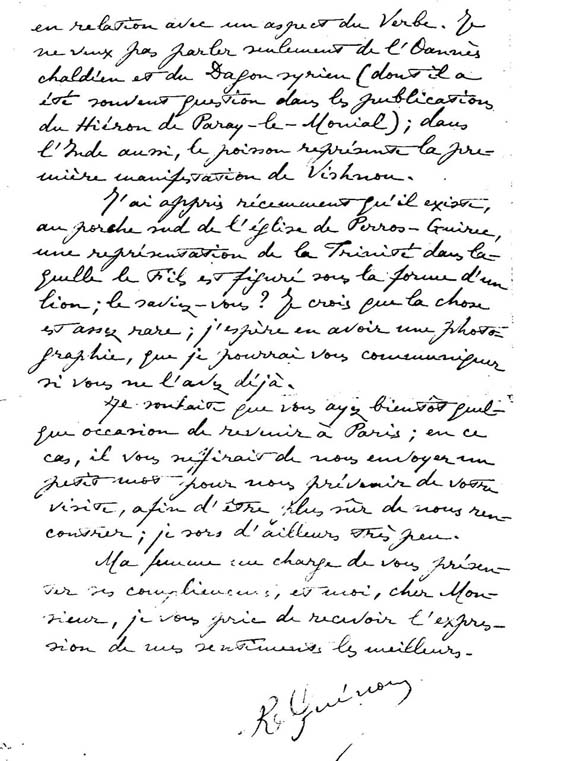 en relation avec un aspect du Verbe. Je
ne veux pas parler seulement de l'Oannès
chaldéen et du Dagon syrien (dont il a
été souvent question dans les publications
du Hiéron de Paray-le-Monial); dans
l'Inde aussi, le poisson représente la pre-
mière manifestation de Vishnou.
J'ai appris récemment qu'il existe,
au porche sud de l'église de Perros-Guirec,
une représentation de la Trinité dans la-
quelle le Fils est figuré sous la forme d'un
lion; le saviez-vous? Je crois que la chose
est assez rare; j'espère en avoir une photo-
graphie, que je pourrai vous communiquer
si vous ne l'avez déjà.
Je souhaite que vous ayez bientôt quel-
que occasion de revenir à Paris; en ce
cas, il vous suffirait de nous envoyer un
petit mot pour nous prévenir de votre
visite, afin d'être plus sûr de nous ren-
contrer; je sors d'ailleurs très peu.
Ma femme me charge de vous présen-
ter ses compliments, et moi, cher Mon-
sieur, je vous prie de recevoir l'expres-
sion de mes sentiments les meilleurs.
R. Guénon